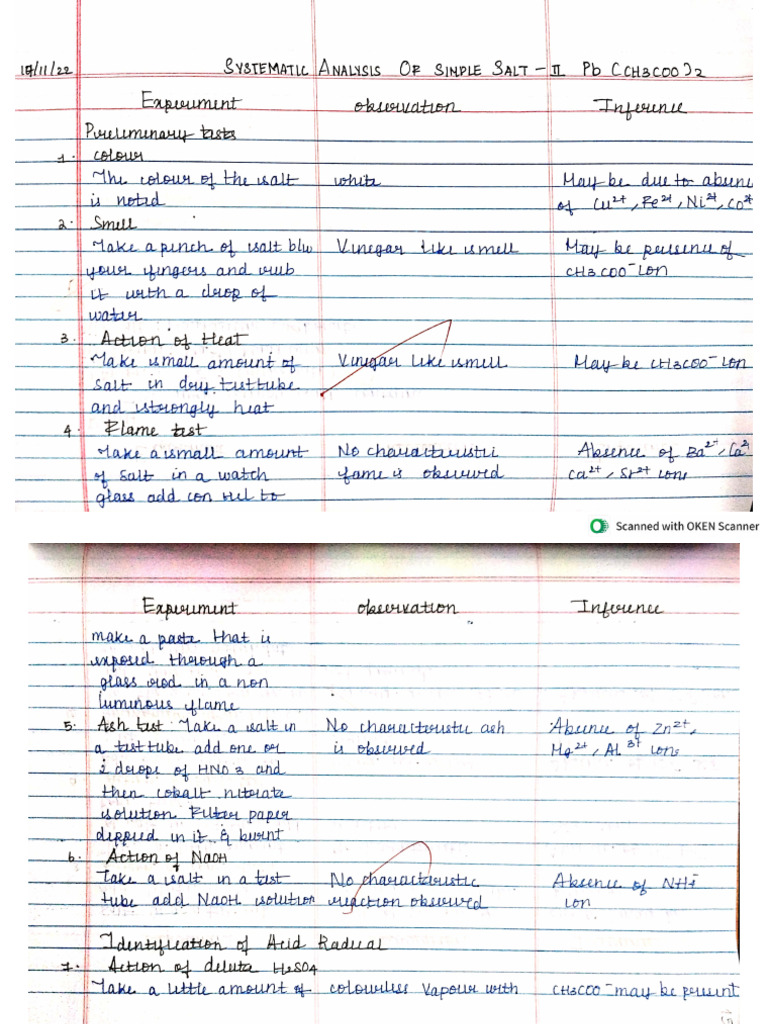 15/11/22 SYSTEMATIC ANALYSIS OF SIMPLE SALT - II Pb (CH3COO)2
Experiment observation Inference
Preliminary tests
1. colour
The colour of the salt white May be due to absenc
is noted of Cu2+, Fe2+, Ni2+, CO2+
2. Smell
Take a pinch of salt b/w Vinegar like smell May be persence of
your fingers and rub CH3COO- ion
it with a drop of
water
3. Action of Heat
Take small amount of Vinegar like smell May be CH3COO- ion
salt in dry testtube
and strongly heat
4. Flame test
Take a small amount No characteristic Absence of Ba2+, Ca2
of salt in a watch fame is observed Ca2+, Sr2+ ions
glass add con Hcl to
Scanned with OKEN Scanner
Experiment observation Inference
make a paste that is
exposed through a
glass rod in a non
luminous flame
5. Ash test Take a salt in No characteristic ash Absence of Zn2+,
a testtube add one or is observed Mg2+, Al3+ ions
2 drops of HNO3 and
then cobalt nitorate
solution Filter paper
dipped in it & burnt
6. Action of NaOH
Take a salt in a test No characteristic Absence of NH4+
tube add NaOH solution reaction observed ion
Identification of Acid Radical
7. Action of dilute H2SO4
Take a little amount of colourless Vapour with CH3COO- may be present